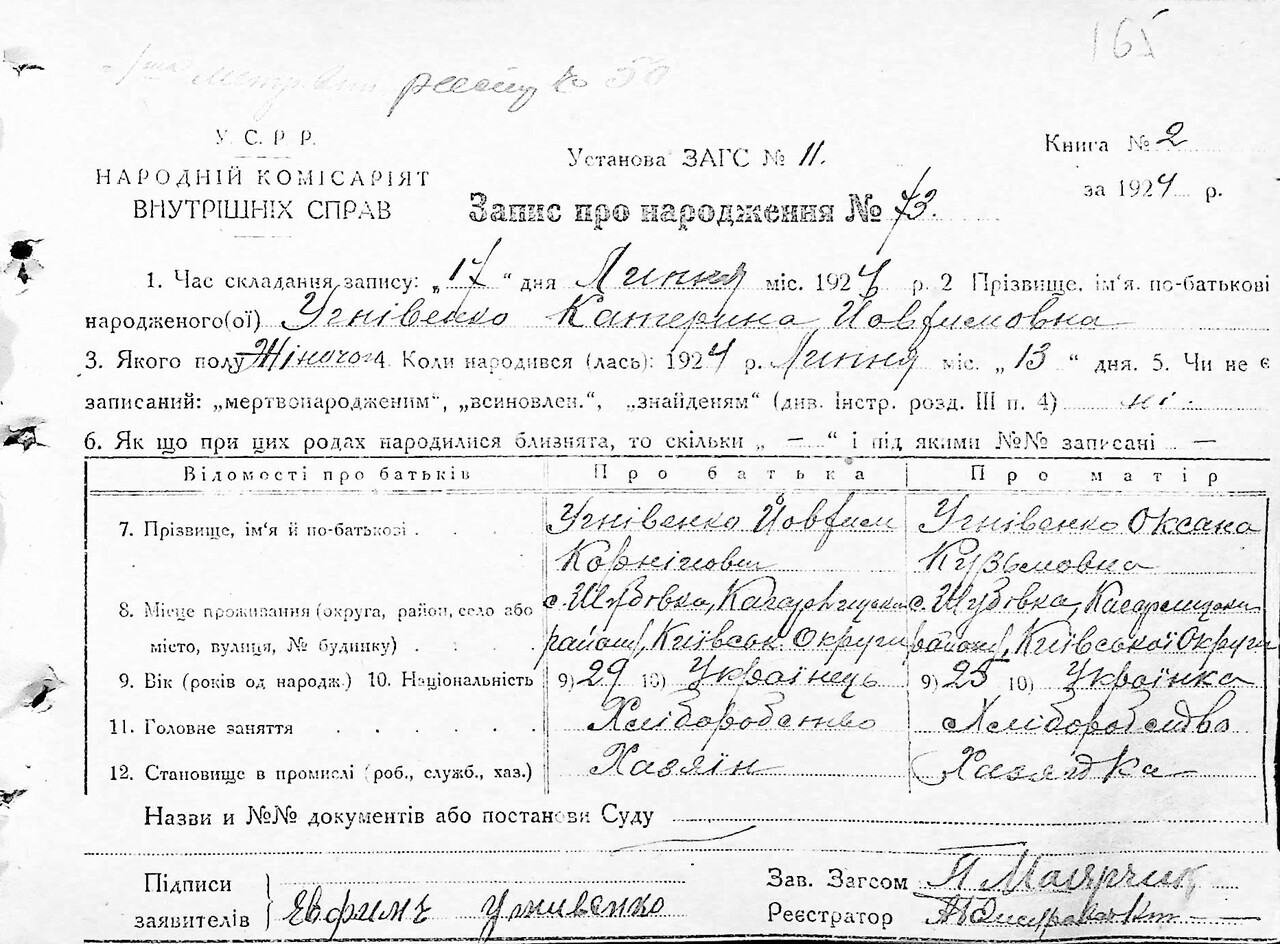 165
реєстр № 50
У. С. Р. Р.
НАРОДНІЙ КОМІСАРІЯТ
ВНУТРІШНІХ СПРАВ
Установа ЗАГС № 11.
Книга № 2
за 1924 р.
Запис про народження № 73.
1. Час складання запису: „17“ дня Липня міс. 1924 р. 2 Прізвище, ім‘я, по-батькові
народженого(ої) Угнівенко Катерина Йовфимовна
3. Якого полу Жіночого 4. Коли народився (лась): 1924 р. Липня міс. „13“ дня. 5. Чи не є
записаний: „мертвонародженим“, „всиновлен.“, „знайденям“ (див. Інстр. розд. III п. 4) ні.
6. Як що при цих родах народилися близнята, то скільки „ — “ і під якими №№ записані —
Відомості про батьків Про батька Про матір
7. Прізвище, ім‘я й по-батькові Угнівенко Йовфим Угнівенко Оксана
Корнійович Кузьмовна
8. Місце проживання (округа, район, село або с. Шубовка, Кагарлицьк с. Шубовка, Кагарлицьк
місто, вулиця, № будинку) району, Київськ Округи району, Київської Округи
9. Вік (років од народж.) 10. Національність 9) 29 10) Українець 9) 25 10) Українка
11. Головне заняття Хліборобство Хліборобство
12. Становище в промислі (роб., служб., хаз.) Хазяін Хазядка
Назви и №№ документів або постанови Суду
Підписи
заявителів Евфимъ Угнивенко
Зав. Загсом П Маярчик
Реєстратор